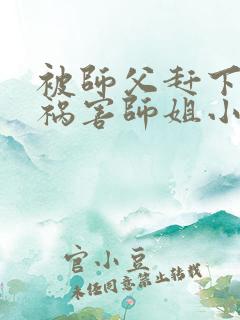 被師父赶下
祸害師姐小
官小豆
未经同意禁止转载